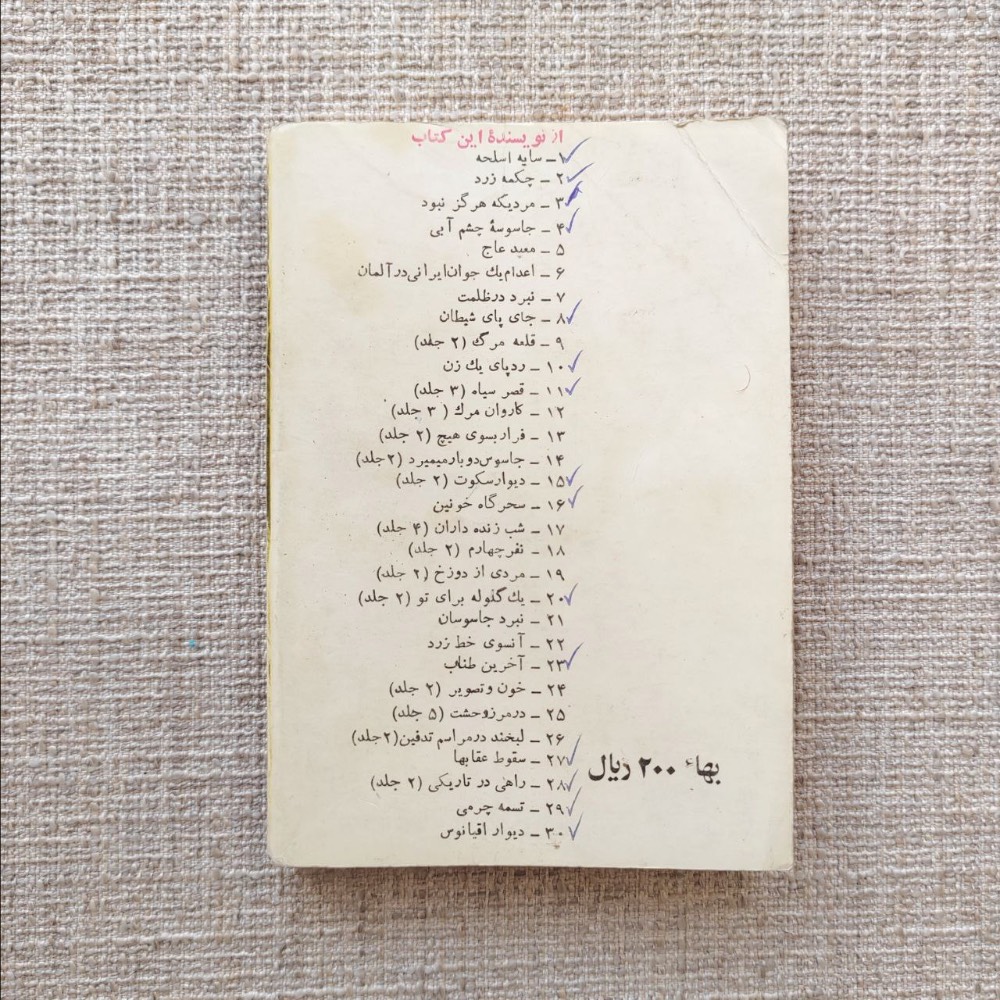 از نویسندهٔ این کتاب
۱ــ سایه اسلحه
۲ ــ چکمه زرد
۳ ــ مردیکه هرگز نبود
۴ ــ جاسوسهٔ چشم آبی
۵ ــ معبد عاج
۶ ــ اعدام یك جوان ایرانی در آلمان
۷ ــ نبرد در ظلمت
۸ ــ جای پای شیطان
۹ ــ قلعه مرگ (۲ جلد)
۱۰ ــ ردپای یك زن
۱۱ ــ قصر سیاه (۳ جلد)
۱۲ ــ کاروان مرك ( ۳ جلد)
۱۳ ــ فرار بسوی هیچ (۲ جلد)
۱۴ ــ جاسوس دوبار میمیرد (۲جلد)
۱۵ ــ دیوار سکوت (۲ جلد)
۱۶ ــ سحرگاه خونین
۱۷ ــ شب زنده داران (۴ جلد)
۱۸ ــ نفر چهارم (۲ جلد)
۱۹ ــ مردی از دوزخ (۲ جلد)
۲۰ ــ یك گلوله برای تو (۲ جلد)
۲۱ ــ نبرد جاسوسان
۲۲ ــ آنسوی خط زرد
۲۳ ــ آخرین طناب
۲۴ ــ خون و تصویر (۲ جلد)
۲۵ ــ در مرز وحشت (۵ جلد)
۲۶ ــ لبخند در مراسم تدفین (۲جلد)
۲۷ ــ سقوط عقابها
۲۸ ــ راهی در تاریکی (۲ جلد)
۲۹ ــ تسمه چرمی
۳۰ ــ دیوار اقیانوس
بهاء ۲۰۰ ریال